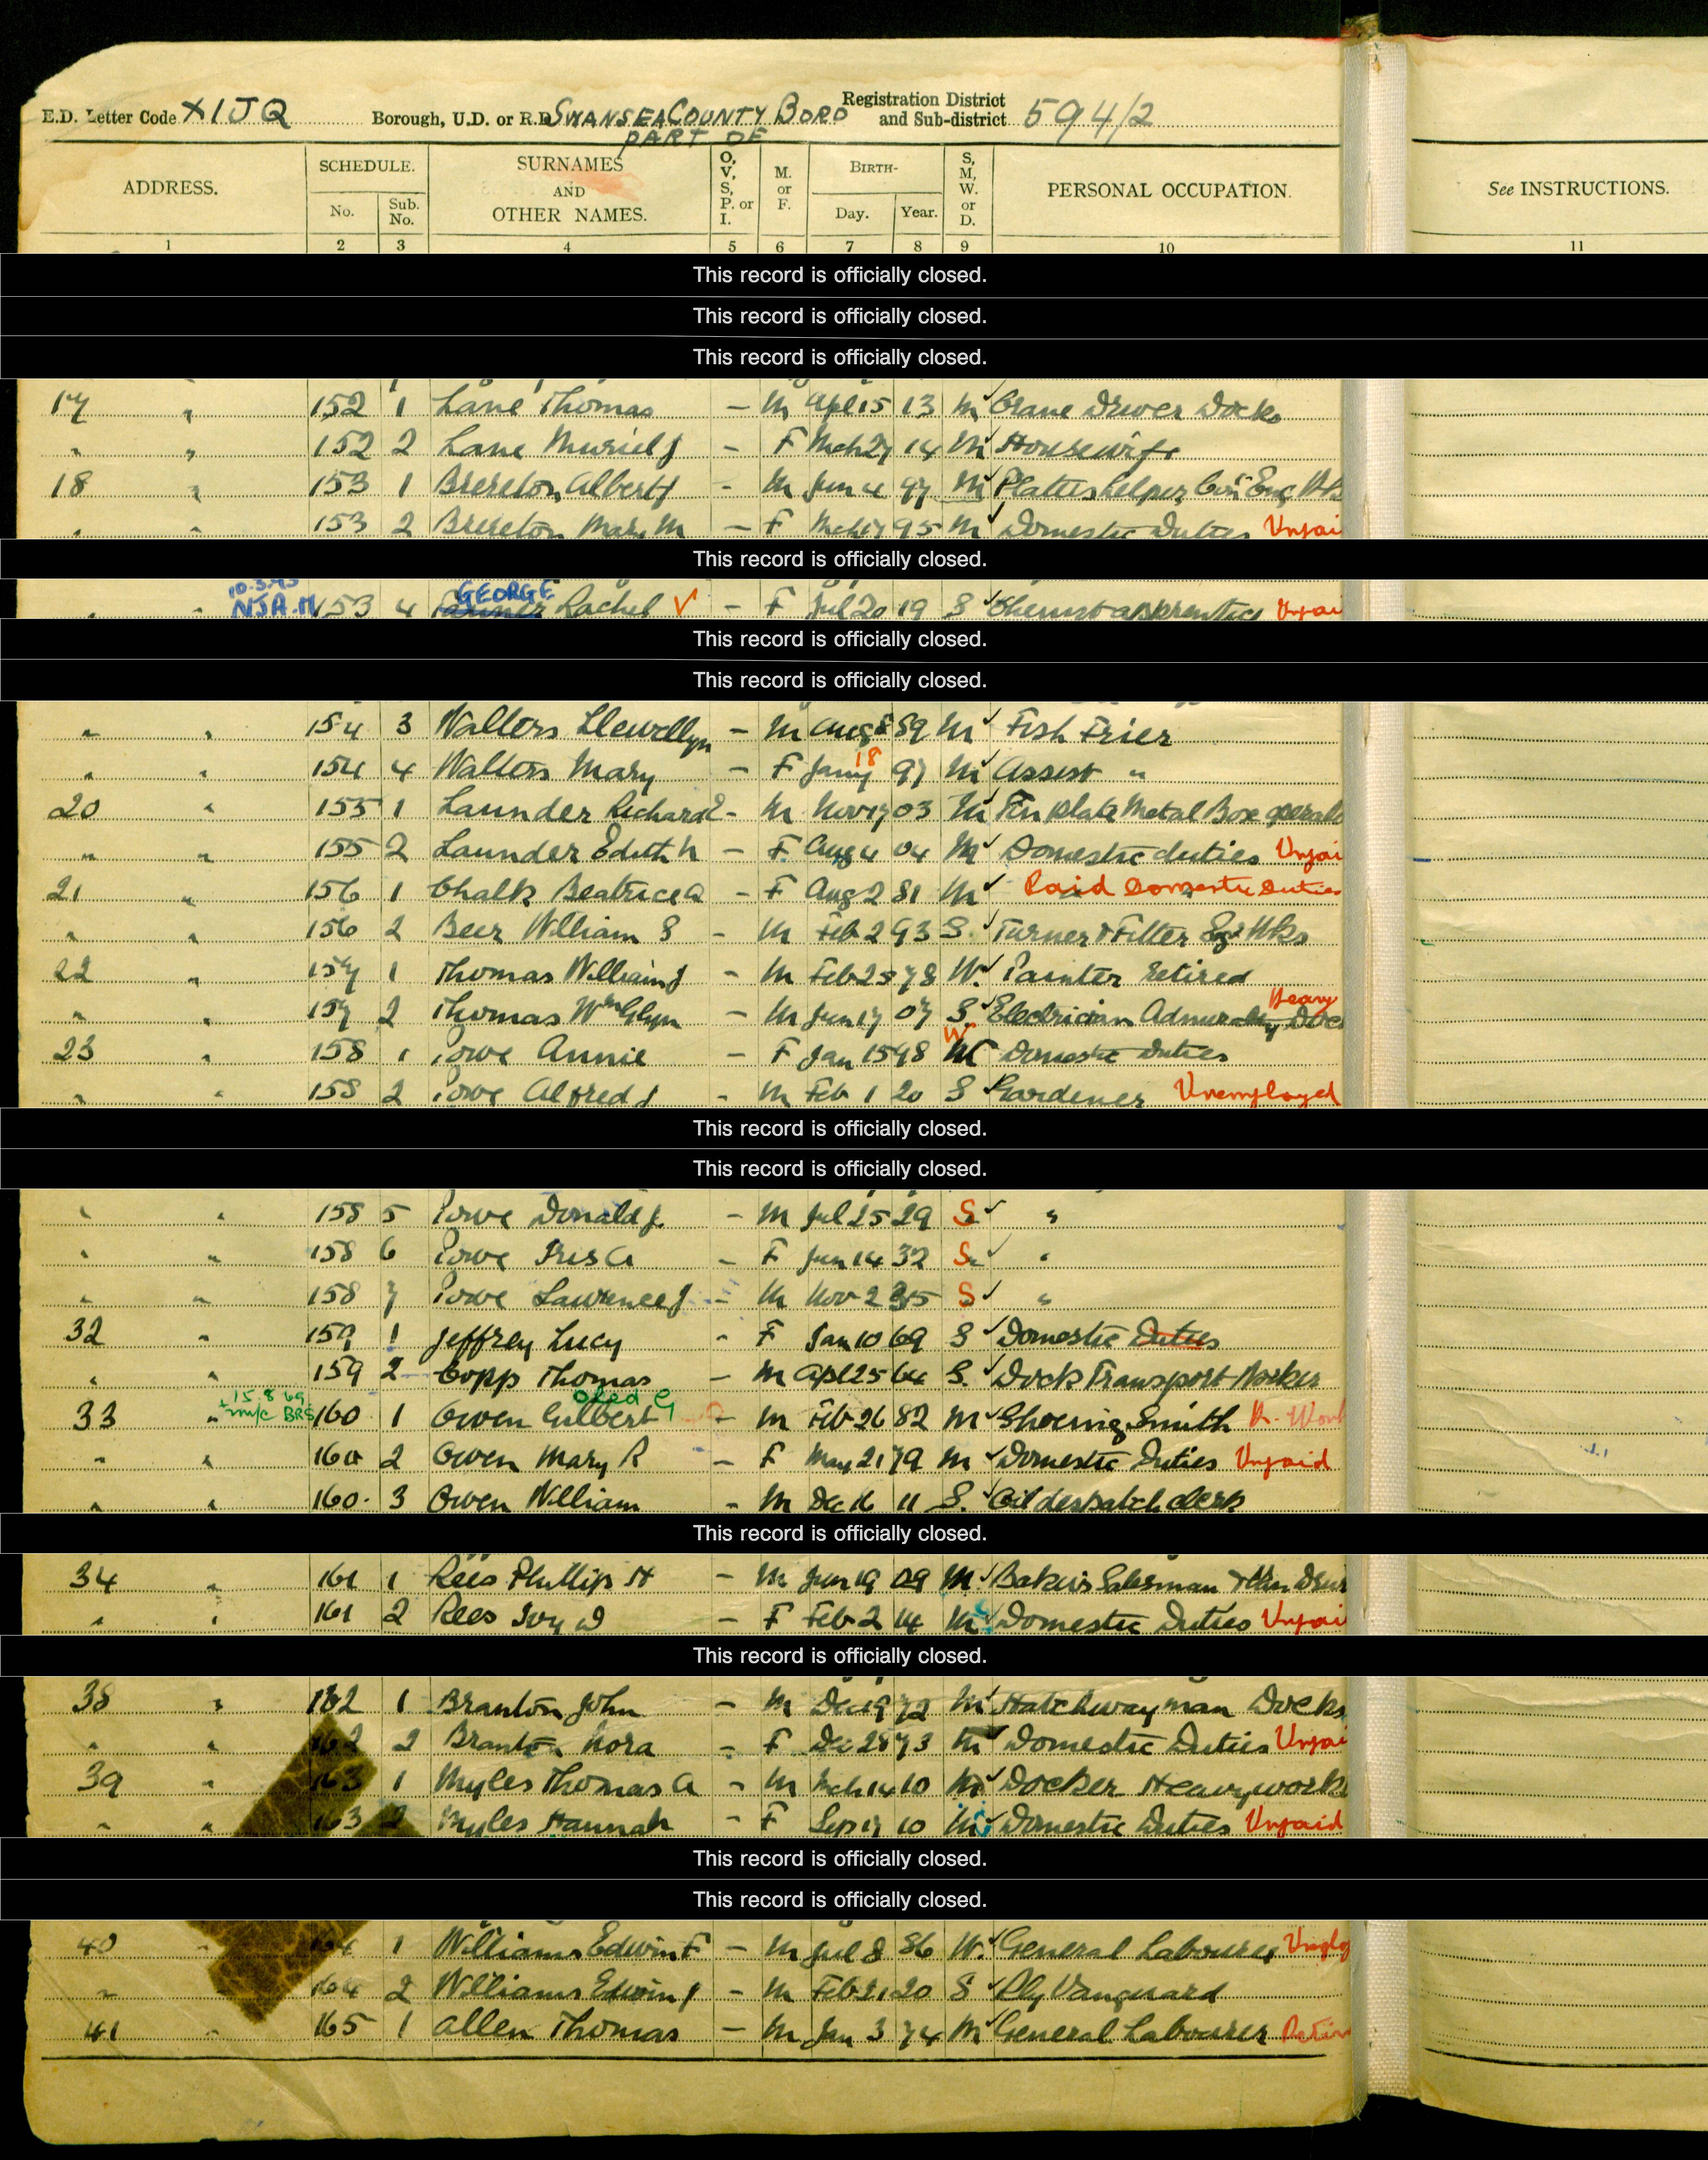 E.D. Letter Code XIJQ Borough, U.D. or R.D. SWANSEA COUNTY BORO PART OF Registration District and Sub-district 594/2
ADDRESS. SCHEDULE. No. Sub. No. SURNAMES AND OTHER NAMES. O, V, S, P. or I. M. or F. BIRTH- Day. Year. S, M, W. or D. PERSONAL OCCUPATION. See INSTRUCTIONS.
1 2 3 4 5 6 7 8 9 10 11
This record is officially closed.
This record is officially closed.
This record is officially closed.
17 " 152 1 Lane Thomas - M Apl 15 13 M Crane Driver Docks
" " 152 2 Lane Muriel J - F Mch 27 14 M Housewife
18 " 153 1 Brereton Albert J - M Jun 4 97 M Platers helper
" " 153 2 Brereton Mary M - F Mch 17 95 M Domestic Duties Unpai
This record is officially closed.
" " 153 4 GEORGE Rachel - F Jul 20 19 S Chemist apprentice Unpai
This record is officially closed.
This record is officially closed.
" " 154 3 Walters Llewellyn - M Aug 8 89 M Fish Frier
" " 154 4 Walters Mary - F Jany 18 97 M Assist "
20 " 155 1 Launder Richard - M Nov 17 03 M Tin Plate Metal Box
" " 155 2 Launder Edith N - F Aug 4 04 M Domestic duties Unpai
21 " 156 1 Chalk Beatrice A - F Aug 2 81 M Paid Domestic Duties
" " 156 2 Beer William S - M Feb 2 93 S. Turner & Fitter Eng Wks
22 " 157 1 Thomas William J - M Feb 25 78 W. Painter Retired
" " 157 2 Thomas Wm Glyn - M Jun 17 07 S. Electrician Admiralty Doc Heavy
23 " 158 1 Powe Annie - F Jan 15 98 W Domestic Duties
" " 158 2 Powe Alfred J - M Feb 1 20 S Gardener Unemployed
This record is officially closed.
This record is officially closed.
" " 158 5 Powe Donald J. - M Jul 25 29 S "
" " 158 6 Powe Iris A - F Jun 14 32 S "
" " 158 7 Powe Lawrence J - M Nov 2 35 S "
32 " 159 1 Jeffrey Lucy - F Jan 10 69 S Domestic Duties
" " 159 2 Copp Thomas - M Apl 25 64 S. Dock Transport Worker
33 " 15.8.69 m/c BRS 160 1 Owen Gilbert G - M Feb 26 82 M Shoeing Smith
" " 160 2 Owen Mary R - F May 21 79 M Domestic Duties Unpaid
" " 160 3 Owen William - M Dec 16 11 S. Oil despatch clerk
This record is officially closed.
34 " 161 1 Rees Phillip H - M Jun 19 09 M Bakers Salesman & Van Driv
" " 161 2 Rees Ivy D - F Feb 2 14 M Domestic Duties Unpai
This record is officially closed.
38 " 162 1 Branton John - M Dec 19 72 M Hatchwayman Docks
" " 162 2 Branton Nora - F Dec 28 73 M Domestic Duties Unpai
39 " 163 1 Myles Thomas A - M Mch 14 10 M Docker Heavy work
" " 163 2 Myles Hannah - F Sep 17 10 M Domestic Duties Unpaid
This record is officially closed.
This record is officially closed.
40 " 164 1 Williams Edwin F - M Jul 8 86 W. General Labourer
" " 164 2 Williams Edwin J - M Feb 21 20 S Ply Vanguard
41 " 165 1 Allen Thomas - M Jan 3 74 M General Labourer Retir